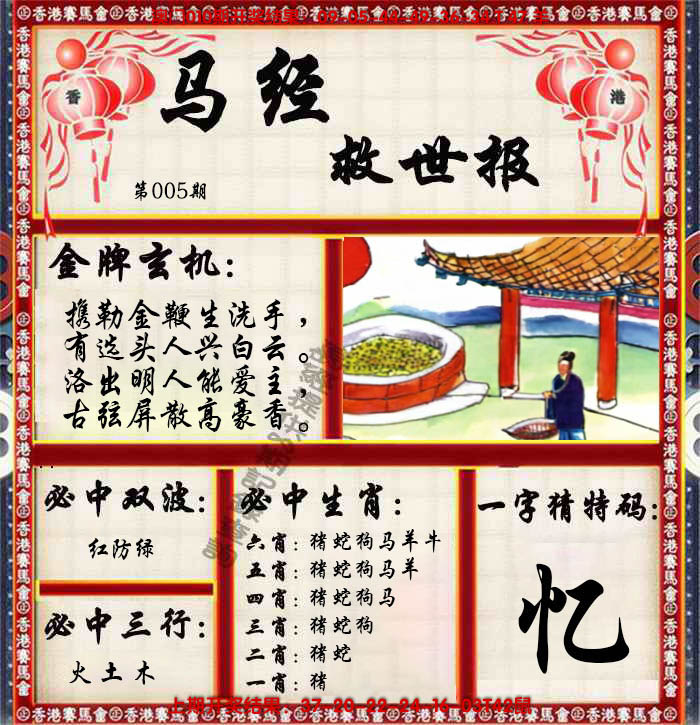 香港賽馬會
香
港
马经
救世报
第005期
金牌玄机：
携勒金鞭生洗手，
有选头人兴白云。
洛出明人能爱主，
古弦屏散高豪香。
必中双波：
红防绿
必中三行：
火土木
必中生肖：
六肖：猪蛇狗马羊牛
五肖：猪蛇狗马羊
四肖：猪蛇狗马
三肖：猪蛇狗
二肖：猪蛇
一肖：猪
一字猜特码：
忆
上期开奖结果：37-20-22-24-16-03T42鼠